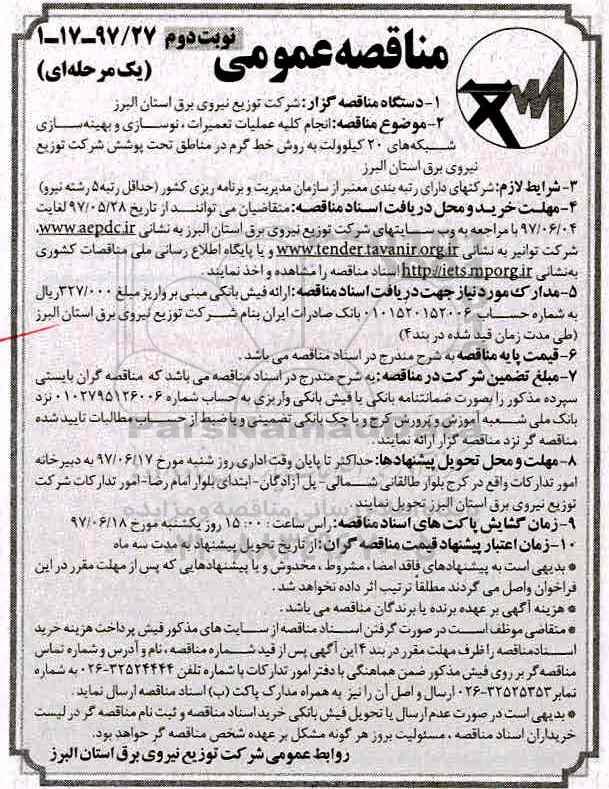 مناقصه عمومی
نوبت دوم ۹۷/۲۷-۱۷-۱
(یک مرحله‌ای)
۱-دستگاه مناقصه گزار: شرکت توزیع نیروی برق استان البرز
۲-موضوع مناقصه: انجام کلیه عملیات تعمیرات ، نوسازی و بهینه‌سازی
شبکه‌های ۲۰ کیلوولت به روش خط گرم در مناطق تحت پوشش شرکت توزیع
نیروی برق استان البرز
۳-شرایط لازم: شرکتهای دارای رتبه بندی معتبر از سازمان مدیریت و برنامه ریزی کشور (حداقل رتبه ۵ رشته نیرو)
۴-مهلت خرید و محل دریافت اسناد مناقصه: متقاضیان می توانند از تاریخ ۹۷/۰۵/۲۸ لغایت
۹۷/۰۶/۰۴ با مراجعه به وب سایتهای شرکت توزیع نیروی برق استان البرز به نشانی www.aepdc.ir،
شرکت توانیر به نشانی www.tender.tavanir.org.ir و یا پایگاه اطلاع رسانی ملی مناقصات کشوری
به‌نشانی http://iets.mporg.ir اسناد مناقصه را مشاهده و اخذ نمایند.
۵-مدارک مورد نیاز جهت دریافت اسناد مناقصه: ارائه فیش بانکی مبنی بر واریز مبلغ ۳۲۷/۰۰۰ ریال
به شماره حساب ۰۱۰۱۵۲۰۱۵۲۰۰۶ بانک صادرات ایران بنام شرکت توزیع نیروی برق استان البرز
(طی مدت زمان قید شده در بند ۴)
۶-قیمت پایه مناقصه به شرح مندرج در اسناد مناقصه می باشد .
۷-مبلغ تضمین شرکت در مناقصه: به شرح مندرج در اسناد مناقصه می باشد که مناقصه گران بایستی
سپرده مذکور را بصورت ضمانتنامه بانکی یا فیش بانکی واریزی به حساب شماره ۰۱۰۲۷۹۵۱۲۶۰۰۶ نزد
بانک ملی شعبه آموزش و پرورش کرج و یا چک بانکی تضمینی و یا ضبط از حساب مطالبات تایید شده
مناقصه گر نزد مناقصه گزار ارائه نمایند .
۸-مهلت و محل تحویل پیشنهادها: حداکثر تا پایان وقت اداری روز شنبه مورخ ۹۷/۰۶/۱۷ به دبیرخانه
امور تدارکات واقع در کرج بلوار طالقانی شمالی- پل آزادگان- ابتدای بلوار امام رضا- امور تدارکات شرکت
توزیع نیروی برق استان البرز تحویل نمایند.
۹-زمان گشایش پاکت های اسناد مناقصه: راس ساعت : ۱۵:۰۰ روز یکشنبه مورخ ۹۷/۰۶/۱۸
۱۰-زمان اعتبار پیشنهاد قیمت مناقصه گران : از تاریخ تحویل پیشنهاد به مدت سه ماه
* بدیهی است به پیشنهادهای فاقد امضا ، مشروط ، مخدوش و یا پیشنهادهایی که پس از مهلت مقرر در این
فراخوان واصل می گردند مطلقاً ترتیب اثر داده نخواهد شد .
* هزینه آگهی بر عهده برنده یا برندگان مناقصه می باشد .
* متقاضی موظف است در صورت گرفتن اسناد مناقصه از سایت های مذکور فیش پرداخت هزینه خرید
اسنادمناقصه را ظرف مهلت مقرر در بند ۴ این آگهی پس از قید شماره مناقصه ، نام و آدرس و شماره تماس
مناقصه گر بر روی فیش مذکور ضمن هماهنگی با دفتر امور تدارکات با شماره تلفن ۳۲۵۲۴۴۴۴-۰۲۶ به شماره
نمابر ۳۲۵۲۵۳۵۳-۰۲۶ ارسال و اصل آن را نیز به همراه مدارک پاکت (ب) اسناد مناقصه ارسال نماید .
* بدیهی است در صورت عدم ارسال یا تحویل فیش بانکی خرید اسناد مناقصه و ثبت نام مناقصه گر در لیست
خریداران اسناد مناقصه ، مسئولیت بروز هر گونه مشکل بر عهده شخص مناقصه گر خواهد بود.
روابط عمومی شرکت توزیع نیروی برق استان البرز